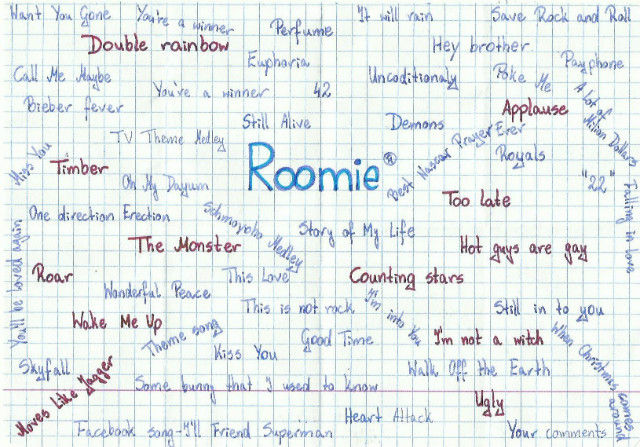 Want You Gone
You're a winner
Perfume
It will rain
Save Rock and Roll
Double rainbow
Hey brother
Payphone
Euphoria
Call Me Maybe
You're a winner
42
Uncoditionaly
Poke Me
A lot of
Milion Dollars
Bieber fever
Applause
TV Theme Medley
Still Alive
Demons
Best Nascar Prayer Ever
Royals
Miss You
Timber
Oh My Dayum
Roomie®
"22"
Too late
Falling in love
One direction Erection
Schmoyoho Medley
Story of My Life
You'll be loved again
The Monster
Hot guys are gay
Roar
Wonderful Peace
This Love
Counting stars
This is not rock
I'm into You
Still in to you
Wake Me Up
Theme song
Good Time
I'm not a witch
When Christmas comes
around
Kiss You
Skyfall
Walk Off the Earth
Moves Like Jagger
Some bunny that I used to know
Ugly
Heart Attack
Facebook song-I'll Friend Superman
Your comments